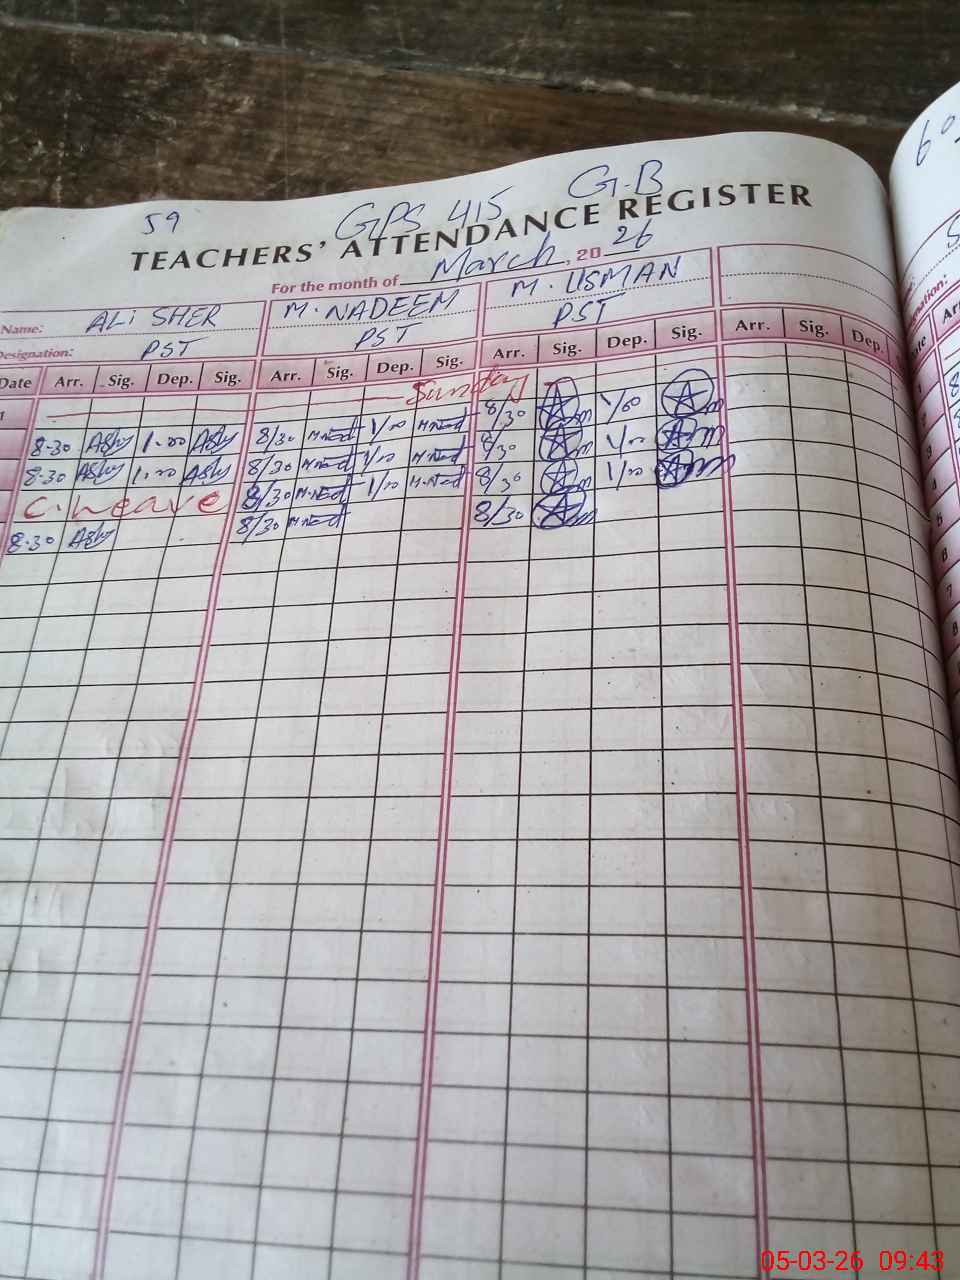 59 GPS 415 G.B
TEACHERS' ATTENDANCE REGISTER
For the month of March, 2026
Name: ALI SHER M. NADEEM M. USMAN
Designation: PST PST PST
Date Arr. Sig. Dep. Sig. Arr. Sig. Dep. Sig. Arr. Sig. Dep. Sig. Arr. Sig. Dep.
1 Sunday
8-30 1.00 8/30 1/00 8/30 1/00
8-30 1.00 8/30 1/00 8/30 1/00
C. Leave 8/30 1/00 8/30 1/00
8-30 8/30 8/30
60
05-03-26 09:43